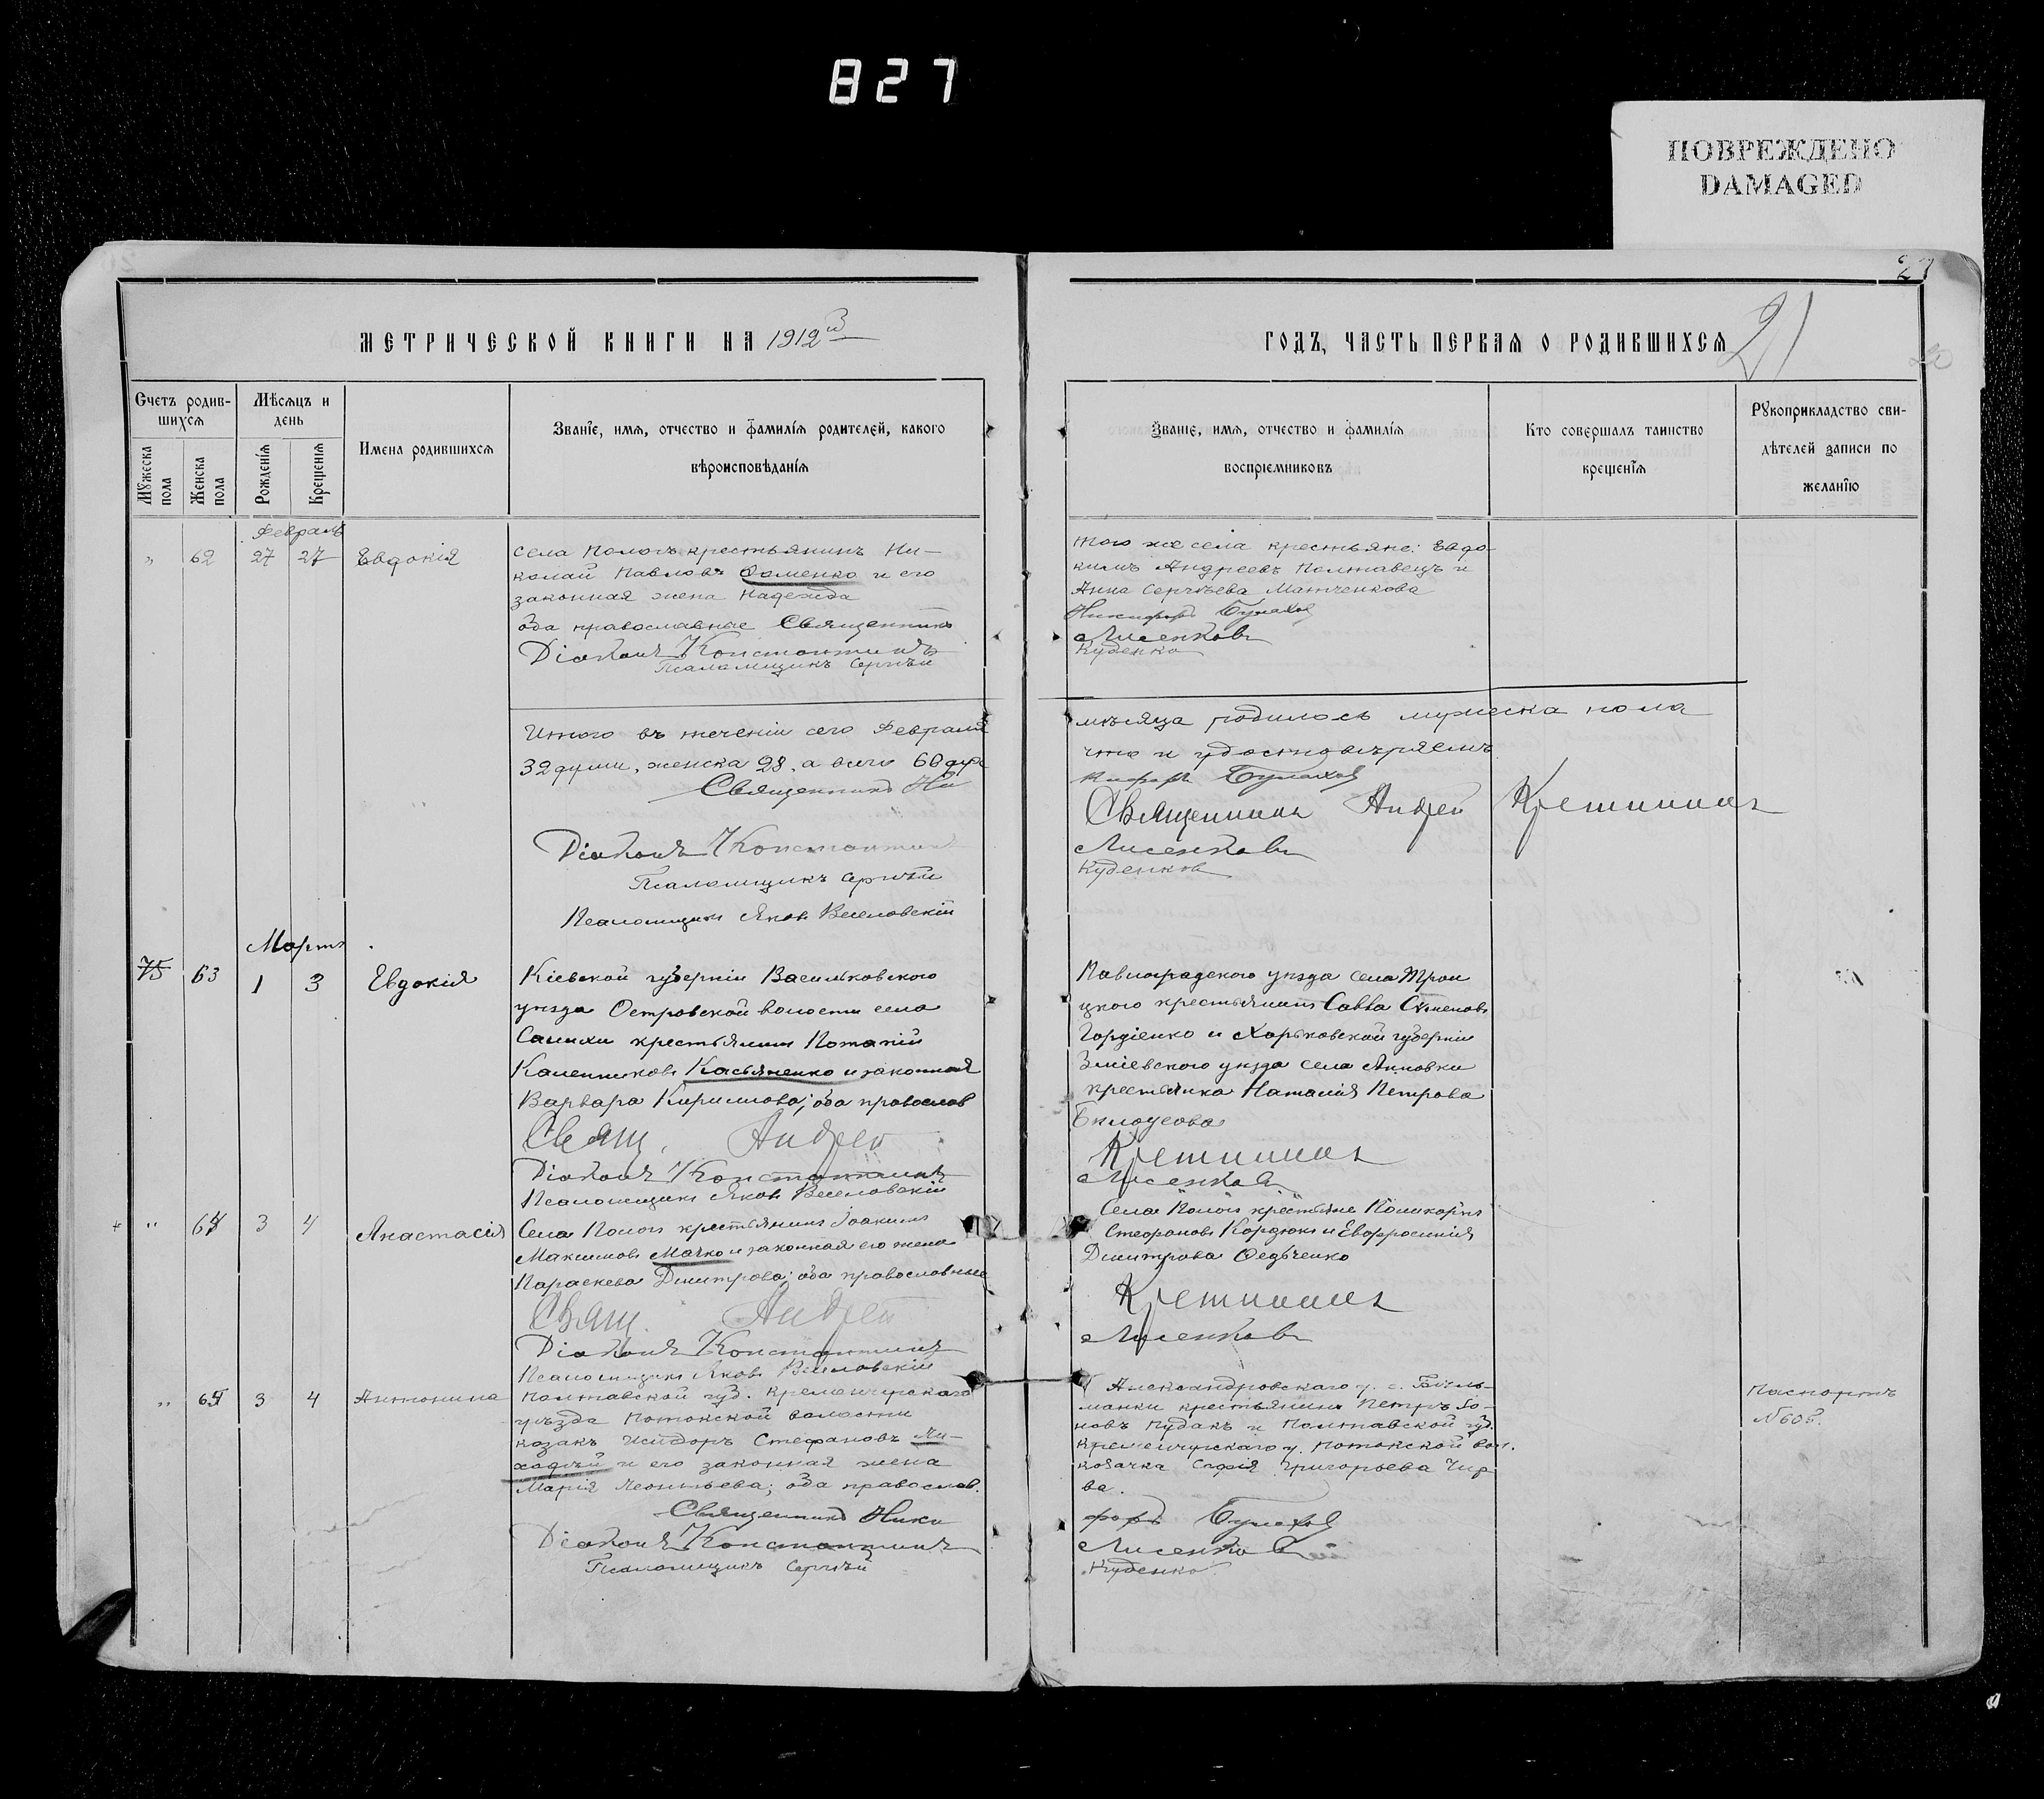 827
ПОВРЕЖДЕНО
DAMAGED
27
МЕТРИЧЕСКОЙ КНИГИ НА 1912/3
ГОДЪ, ЧАСТЬ ПЕРВАЯ О РОДИВШИХСЯ
21
Счетъ родив-
шихся
Мужеска пола
Женска пола
Мѣсяцъ и
день
Рожденія
Крещенія
Имена родившихся
Званіе, имя, отчество и фамилія родителей, какого
вѣроисповѣданія
Званіе, имя, отчество и фамилія
воспріемниковъ
Кто совершалъ таинство
крещенія
Рукоприкладство сви-
дѣтелей записи по
желанію
Февраль
" 62 27 27 Евдокія
села Пологъ крестьянинъ Ни-
колай Павловъ Фоменко и его
законная жена Надежда
оба православные Священникъ
Діаконъ Константинъ
Псаломщикъ Сергѣй
того же села крестьяне: Евдо-
кимъ Андреевъ Полтавецъ и
Анна Сергѣева Матченкова
Никифоръ Булахов
Лисенковъ
Куденко
Итого въ теченіи сего Февраля
32 души, женска 28, а всего 60 душ
Священникъ Ни
Діаконъ Константинъ
Псаломщикъ Сергѣй
Псаломщикъ Яковъ Веселовскій
мѣсяца родилось мужеска пола
что и удостовѣряемъ
кифоръ Булахов
Священникъ Андрей Кретининъ
Лисенковъ
Куденков
Мартъ
75 63 1 3 Евдокія
Кіевской губерніи Васильковскаго
уѣзда Островской волости села
крестьянинъ Потапій
Касьяненко и законная
Варвара Кириллова; оба православ
Свящ. Андрей
Діаконъ Константинъ
Псаломщикъ Яковъ Веселовскій
Павлоградскаго уѣзда села Трои
цкого крестьянинъ Савва Семеновъ
Гордіенко и Харьковской губерніи
Зміевского уѣзда села Анновки
крестьянка Наталія Петрова
Билоусова
Кретининъ
Лисенков
" 64 3 4 Анастасія
Села Пологъ крестьянинъ Іоакимъ
Максимовъ Мачко и законная его жена
Параскева Димитрова; оба православные
Свящ. Андрей
Діаконъ Константинъ
Псаломщикъ Яковъ Веселовскій
Села Пологъ крестьяне Поликарпъ
Стефановъ Кордюкъ и Евфросинія
Димитрова Федѣченко
Кретининъ
Лисенковъ
" 65 3 4 Антонина
Полтавской губ. Кременчугскаго
уѣзда Потокской волости
козакъ Исидоръ Стефановъ Ли-
ходѣй и его законная жена
Марія Леонтьева; оба православ.
Священникъ Ники
Діаконъ Константинъ
Псаломщикъ Сергѣй
Александровскаго у. с. Басль-
манки крестьянинъ Петръ Іо-
новъ Пудакъ и Полтавской губ.
Кременчугскаго у. Потокской вол.
козачка Софія Григорьева Чир
ва.
форъ Булахов
Лисенков
Куденко
Паспортъ
№ 605.